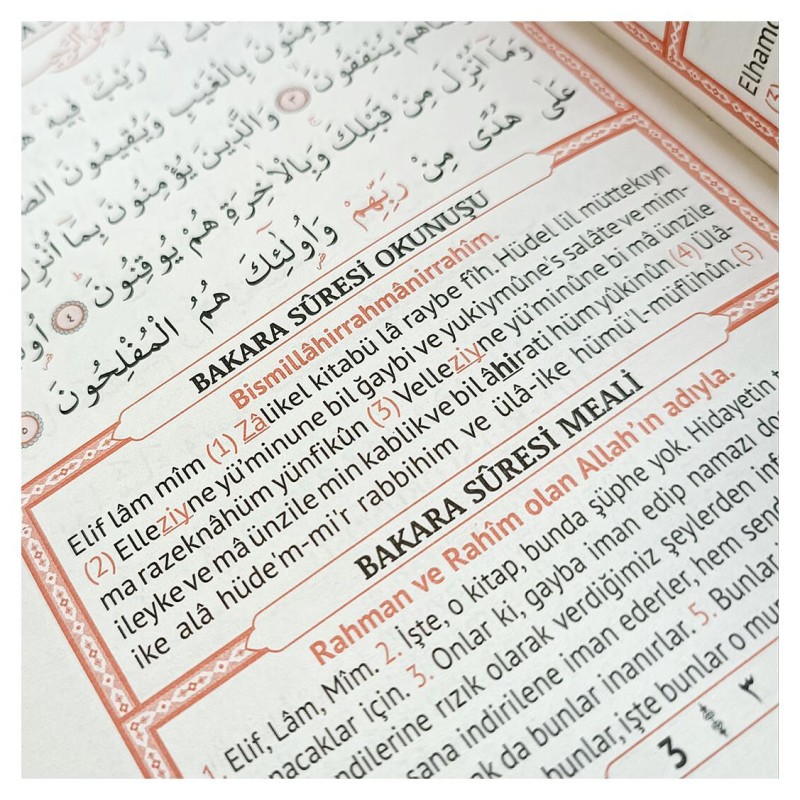 لَا رَيْبَ فِيهِ
يُؤْمِنُونَ بِالْغَيْبِ وَيُقِيمُونَ
يُنْفِقُونَ ٣ وَالَّذِينَ يُؤْمِنُونَ بِمَا
وَمَا اُنْزِلَ مِنْ قَبْلِكَ وَبِالْاٰخِرَةِ هُمْ يُوقِنُونَ ٤
عَلٰى هُدًى مِنْ رَبِّهِمْ وَاُولٰٓئِكَ هُمُ الْمُفْلِحُونَ
BAKARA SÛRESİ OKUNUŞU
Bismillâhirrahmânirrahîm.
Elif lâm mîm (1) Zâlikel kitabü lâ raybe fîh. Hüdel lil müttekıyn
(2) Elleziyne yü'minune bil ğaybi ve yukiymûne's salâte ve mim-
ma razeknâhüm yünfikûn (3) Velleziyne yü'minûne bi mâ ünzile
ileyke ve mâ ünzile min kablik ve bil âhirati hüm yûkinûn (4) Ülâ-
ike alâ hüde'm-mi'r rabbihim ve ülâ-ike hümü'l-müflihûn. (5)
BAKARA SÛRESİ MEALİ
Rahman ve Rahîm olan Allah'ın adıyla.
1. Elif, Lâm, Mîm. 2. İşte, o kitap, bunda şüphe yok. Hidayetin
için. 3. Onlar ki, gayba iman edip namazı
rızık olarak verdiğimiz şeylerden
sana indirilene iman ederler, hem
da bunlar inanırlar. 5. Bunlar
işte bunlar o
3 ٣